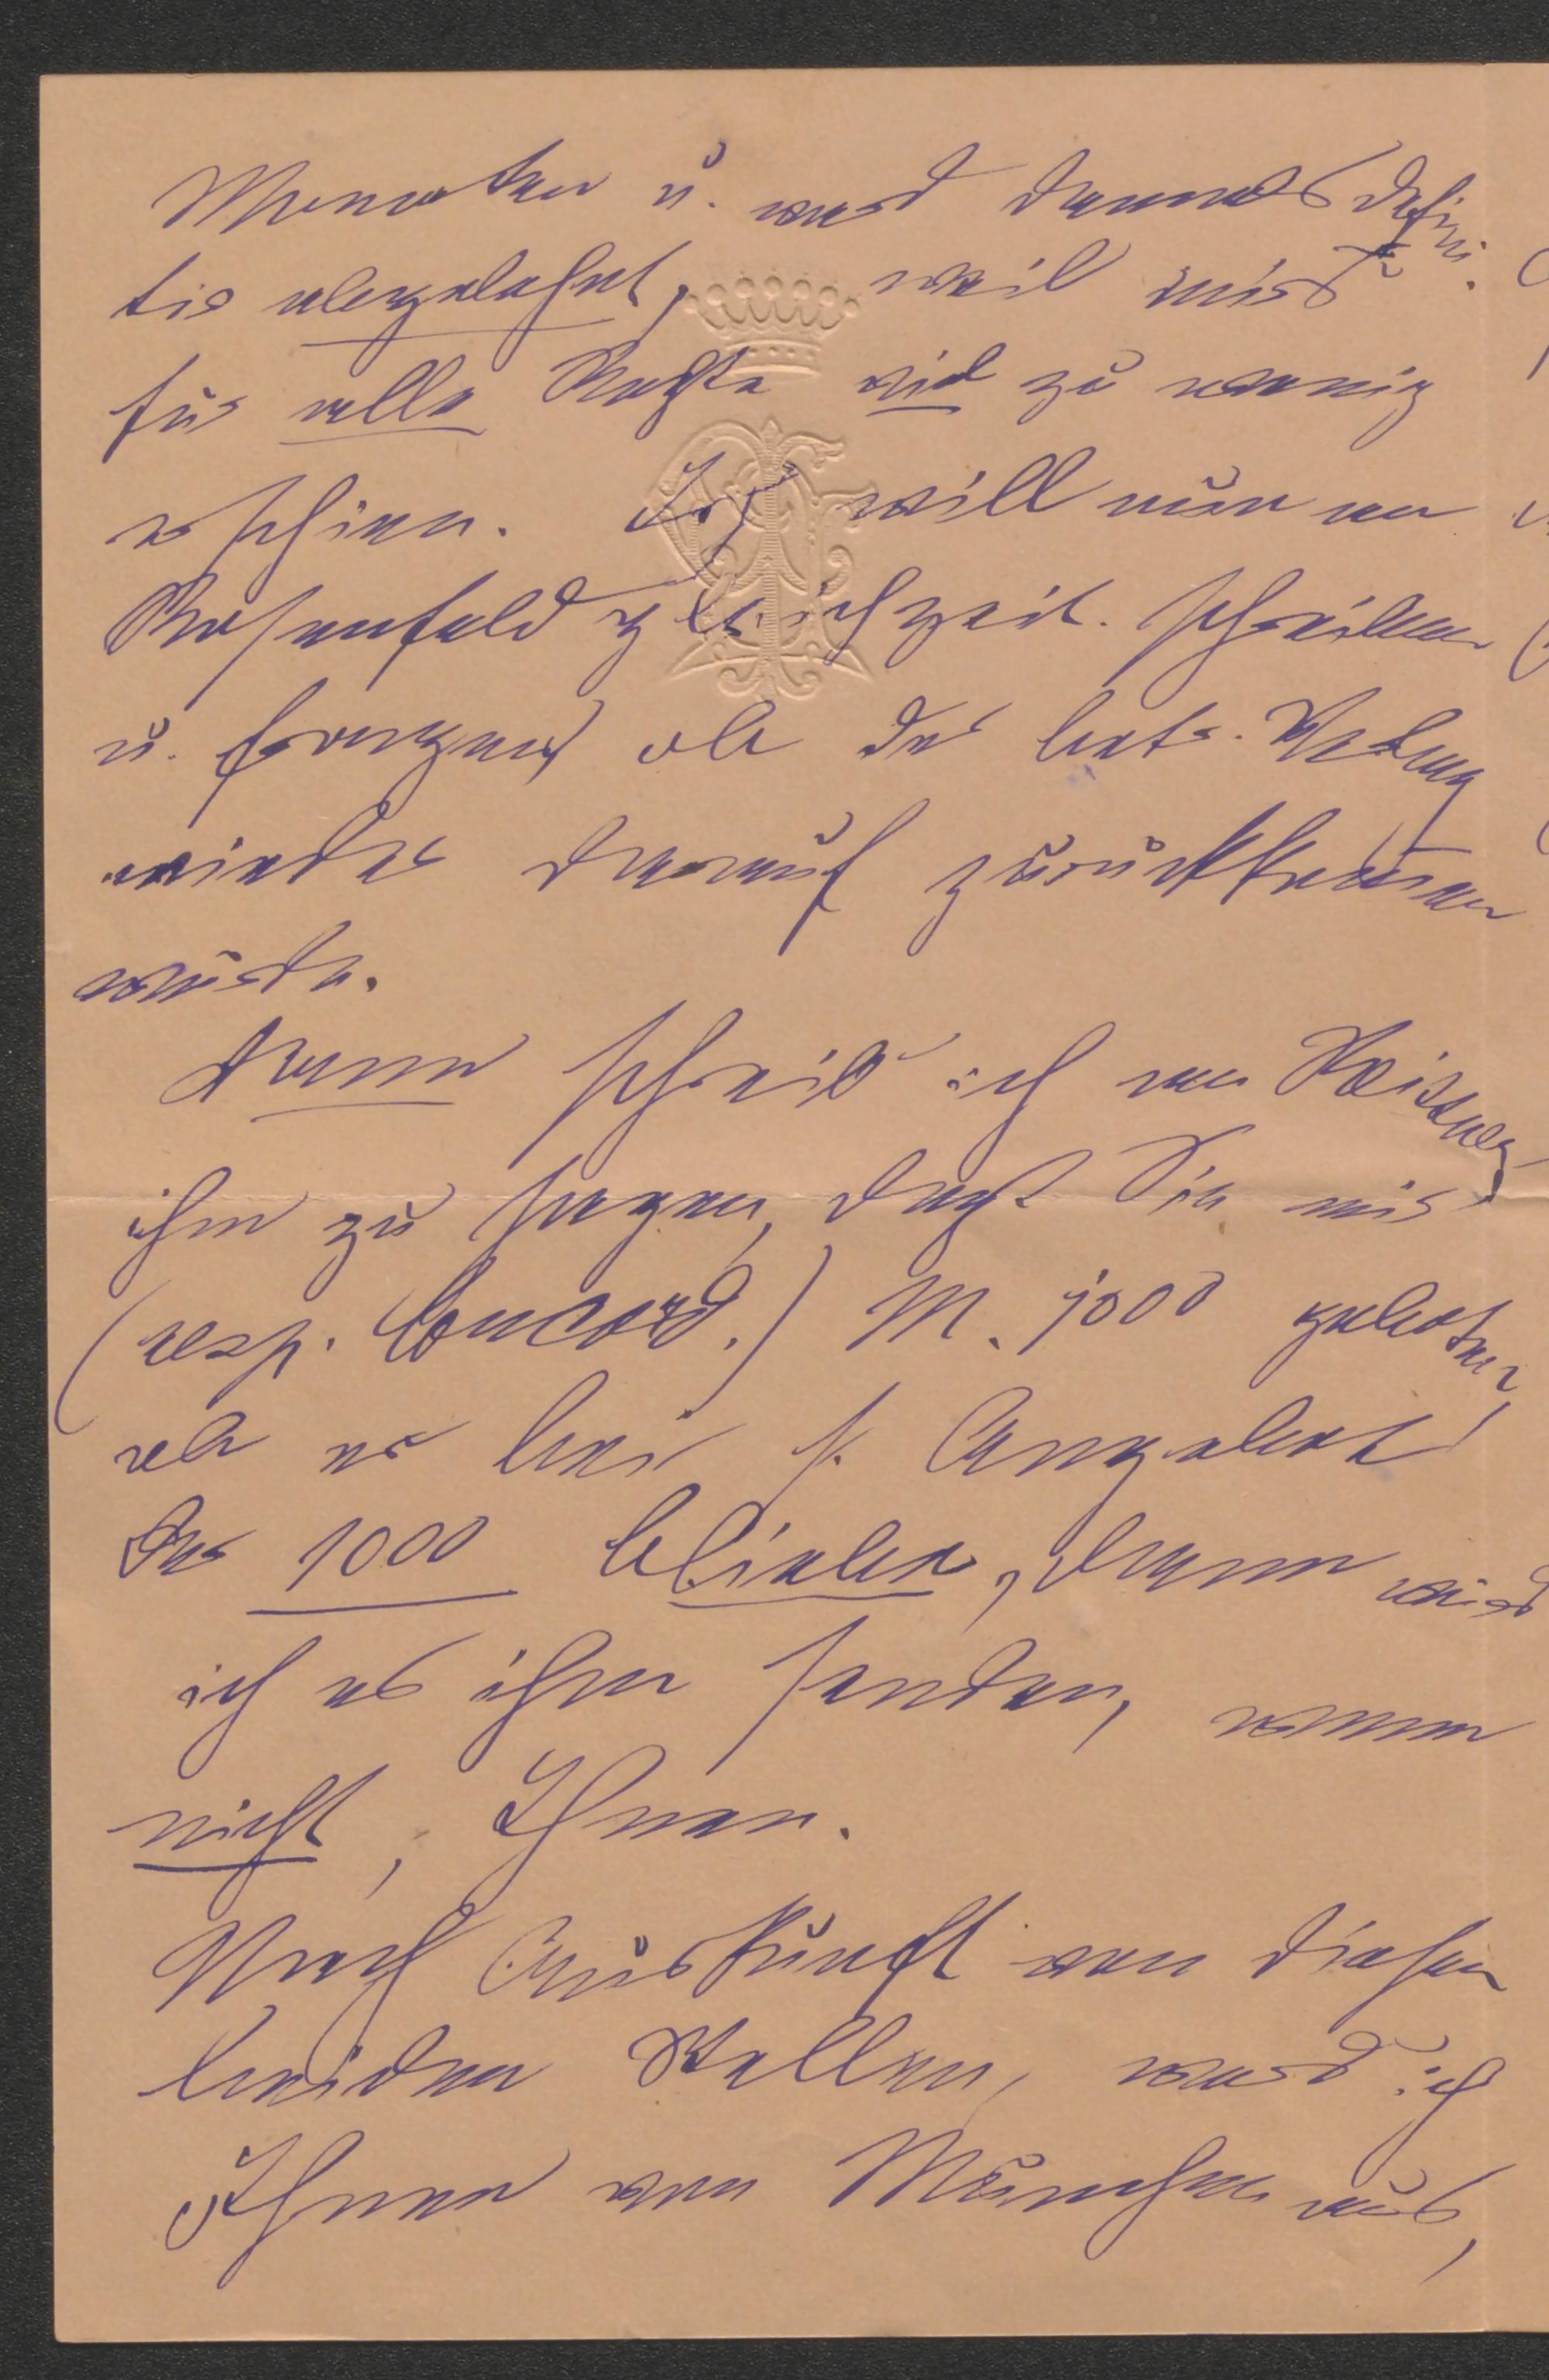 Monaten u. ward damals defini-
tiv abgelehnt, weil mir's
für alle Rechte viel zu wenig
erschien. Ich will nun an
Rosenfeld gleichzeit. schreiben
u. fragen, ob der betr. Verlag
wieder darauf zurückkommen
würde.
Dann schreib' ich an
ihm zu sagen, daß Sie mir
(resp. Concord.) M. 1000 geboten,
ob er bei s. Angebot
der 1000 bliebe, dann wird
ich es ihm senden, wenn
nicht, Ihnen.
Nach Auskunft von diesen
beiden Stellen, werd' ich
Ihnen von München aus,